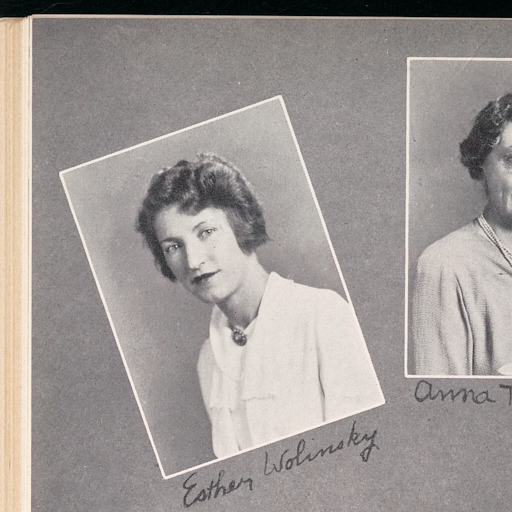 Esther Wolinsky
Anna T